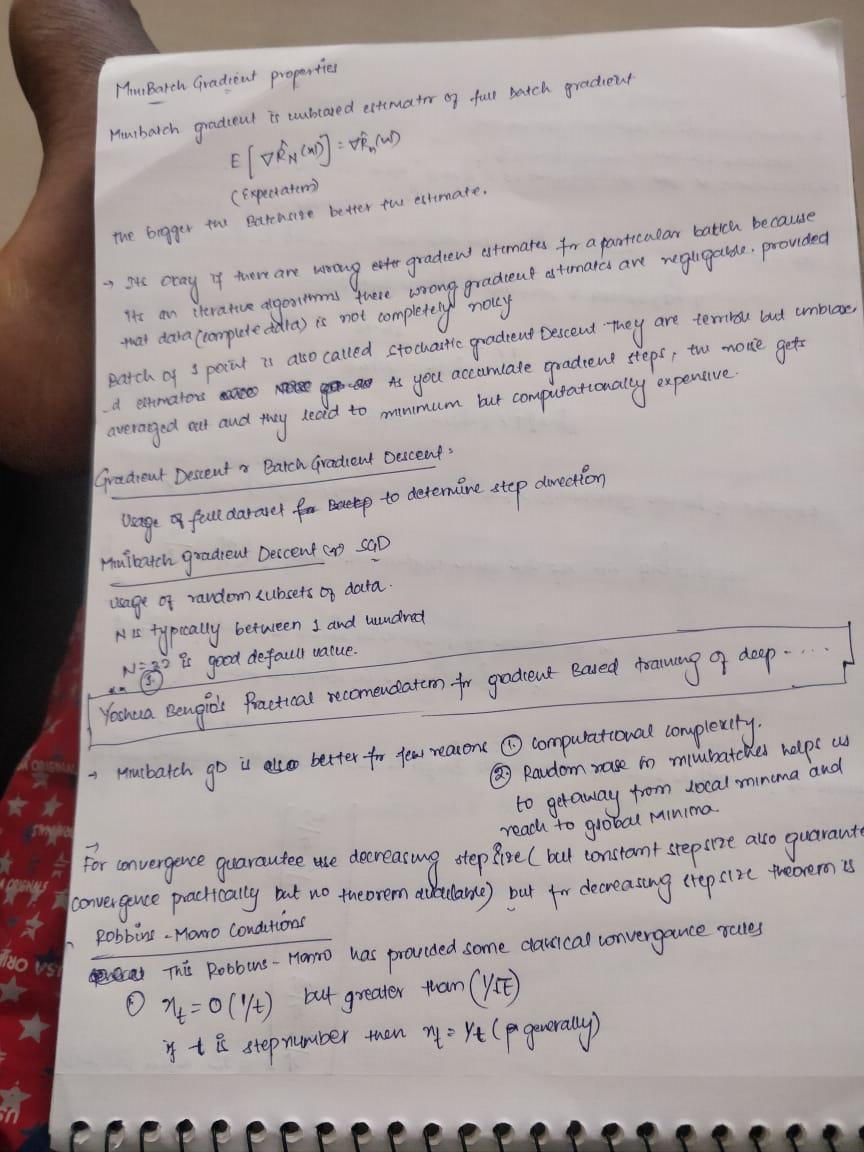 MiniBatch Gradient properties
Minibatch gradient is unbiased estimator of full batch gradient
E [ ∇R̂N(w) ] = ∇R̂n(w)
(Expectation)
The bigger the Batchsize better the estimate.
→ Its okay if there are wrong gradient estimates for a particular batch because
its an iterative algorithms these wrong gradient estimates are negligable. provided
that data (complete data) is not completely noisy
Batch of 1 point is also called Stochastic gradient Descent They are terrible but unbiase
d estimators As you accumlate gradient steps, the noise gets
averaged out and they lead to minimum but computationally expensive.
Gradient Descent or Batch Gradient Descent:
Usage of full dataset to determine step direction
Minibatch gradient Descent (or) SGD
usage of random subsets of data.
N is typically between 1 and hundred
N=32 is good default value.
Yoshua Bengio's Practical recomendation for gradient Based training of deep - ....
→ Minibatch GD is better for few reasons ① computational complexity.
② Random in minibatches helps us
to getaway from local minima and
reach to global Minima.
→
For convergence guarantee use decreasing step size (but constant stepsize also guarante
convergence practically but no theorem available) but for decreasing stepsize theorem is
Robbins - Monro Conditions
This Robbins - Monro has provided some classical convergance rules
① ηt = O(1/t) but greater than (1/√t)
if t is step number then ηt = 1/t ( generally)
ORIGINAL
ORIGINALS
USA ORI